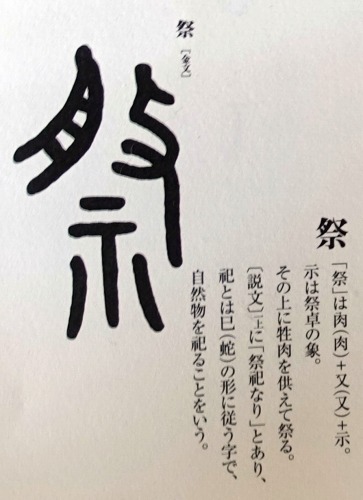 祭
「祭」は肉(肉)+又(又)+示。
示は祭卓の象。
その上に牲肉を供えて祭る。
〔説文〕一上に「祭祀なり」とあり、
祀とは巳(蛇)の形に従う字で、
自然物を祀ることをいう。
祭〔金文〕
祭